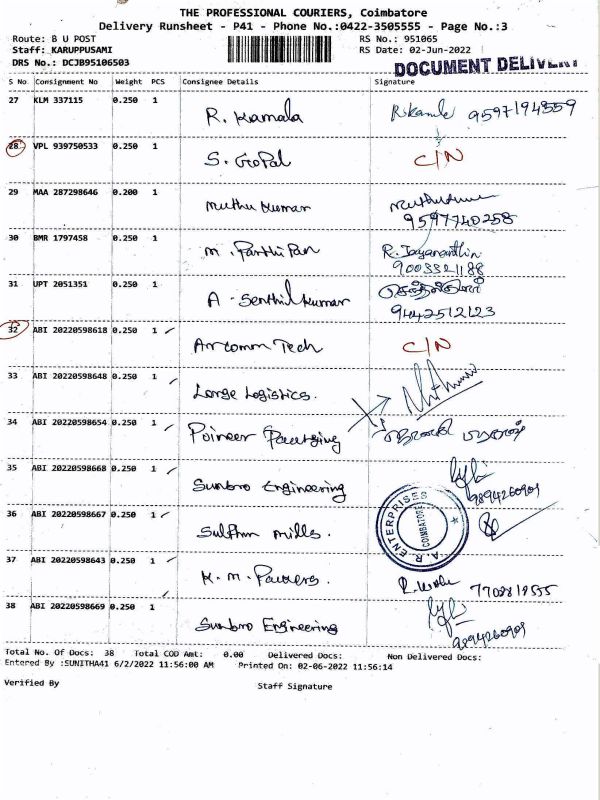 THE PROFESSIONAL COURIERS, Coimbatore
Delivery Runsheet - P41 - Phone No.:0422-3505555 - Page No.:3
Route: B U POST RS No.: 951065
Staff: KARUPPUSAMI RS Date: 02-Jun-2022
DRS No.: DCJB95106503 DOCUMENT DELIVERY
S No. Consignment No Weight PCS Consignee Details Signature
27 KLM 337115 0.250 1 R. Kamala R.Kamala 9597194559
28 VPL 939750533 0.250 1 S. GoPal C/N
29 MAA 287298646 0.200 1 muthu Kumar
9597740258
30 BMR 1797458 0.250 1 m. ParthiPan R. Jayananthin
9003321188
31 UPT 2051351 0.250 1 A. Senthil Kumar
9442512123
32 ABI 20220598618 0.250 1 Arcomm Tech C/N
33 ABI 20220598648 0.250 1 Large Logistics.
34 ABI 20220598654 0.250 1 Poineer
35 ABI 20220598668 0.250 1 Sunbro Engineering
9894260909
36 ABI 20220598667 0.250 1 Sulthn mills. A.R. ENTERPRISES COIMBATORE
37 ABI 20220598643 0.250 1 K. m. Packers. 7708818555
38 ABI 20220598669 0.250 1 Sunbro Engineering
9894260909
Total No. Of Docs: 38 Total COD Amt: 0.00 Delivered Docs: Non Delivered Docs:
Entered By :SUNITHA41 6/2/2022 11:56:00 AM Printed On: 02-06-2022 11:56:14
Verified By Staff Signature